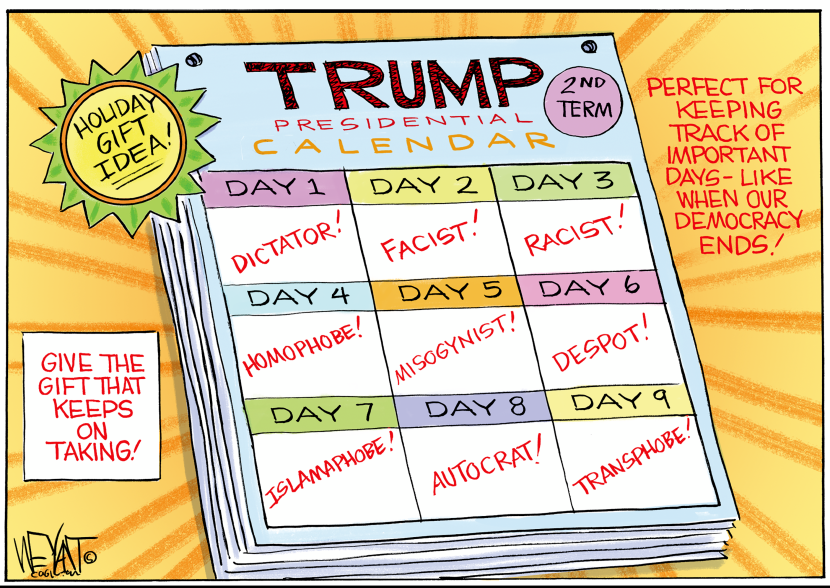 HOLIDAY
GIFT
IDEA!
TRUMP
2ND
TERM
PRESIDENTIAL
CALENDAR
PERFECT FOR
KEEPING
TRACK OF
IMPORTANT
DAYS- LIKE
WHEN OUR
DEMOCRACY
ENDS!
DAY 1 DAY 2 DAY 3
DICTATOR! FACIST! RACIST!
DAY 4 DAY 5 DAY 6
HOMOPHOBE! MISOGYNIST! DESPOT!
DAY 7 DAY 8 DAY 9
ISLAMAPHOBE! AUTOCRAT! TRANSPHOBE!
GIVE THE
GIFT THAT
KEEPS
ON
TAKING!
WEYANT ©